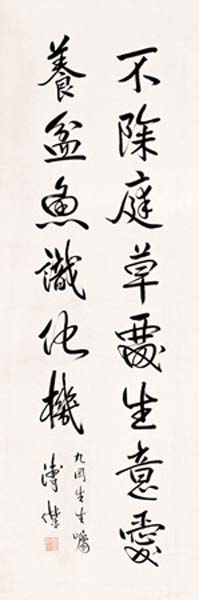 不除庭草生意愛
養盆魚識化機
先生囑
溥傑